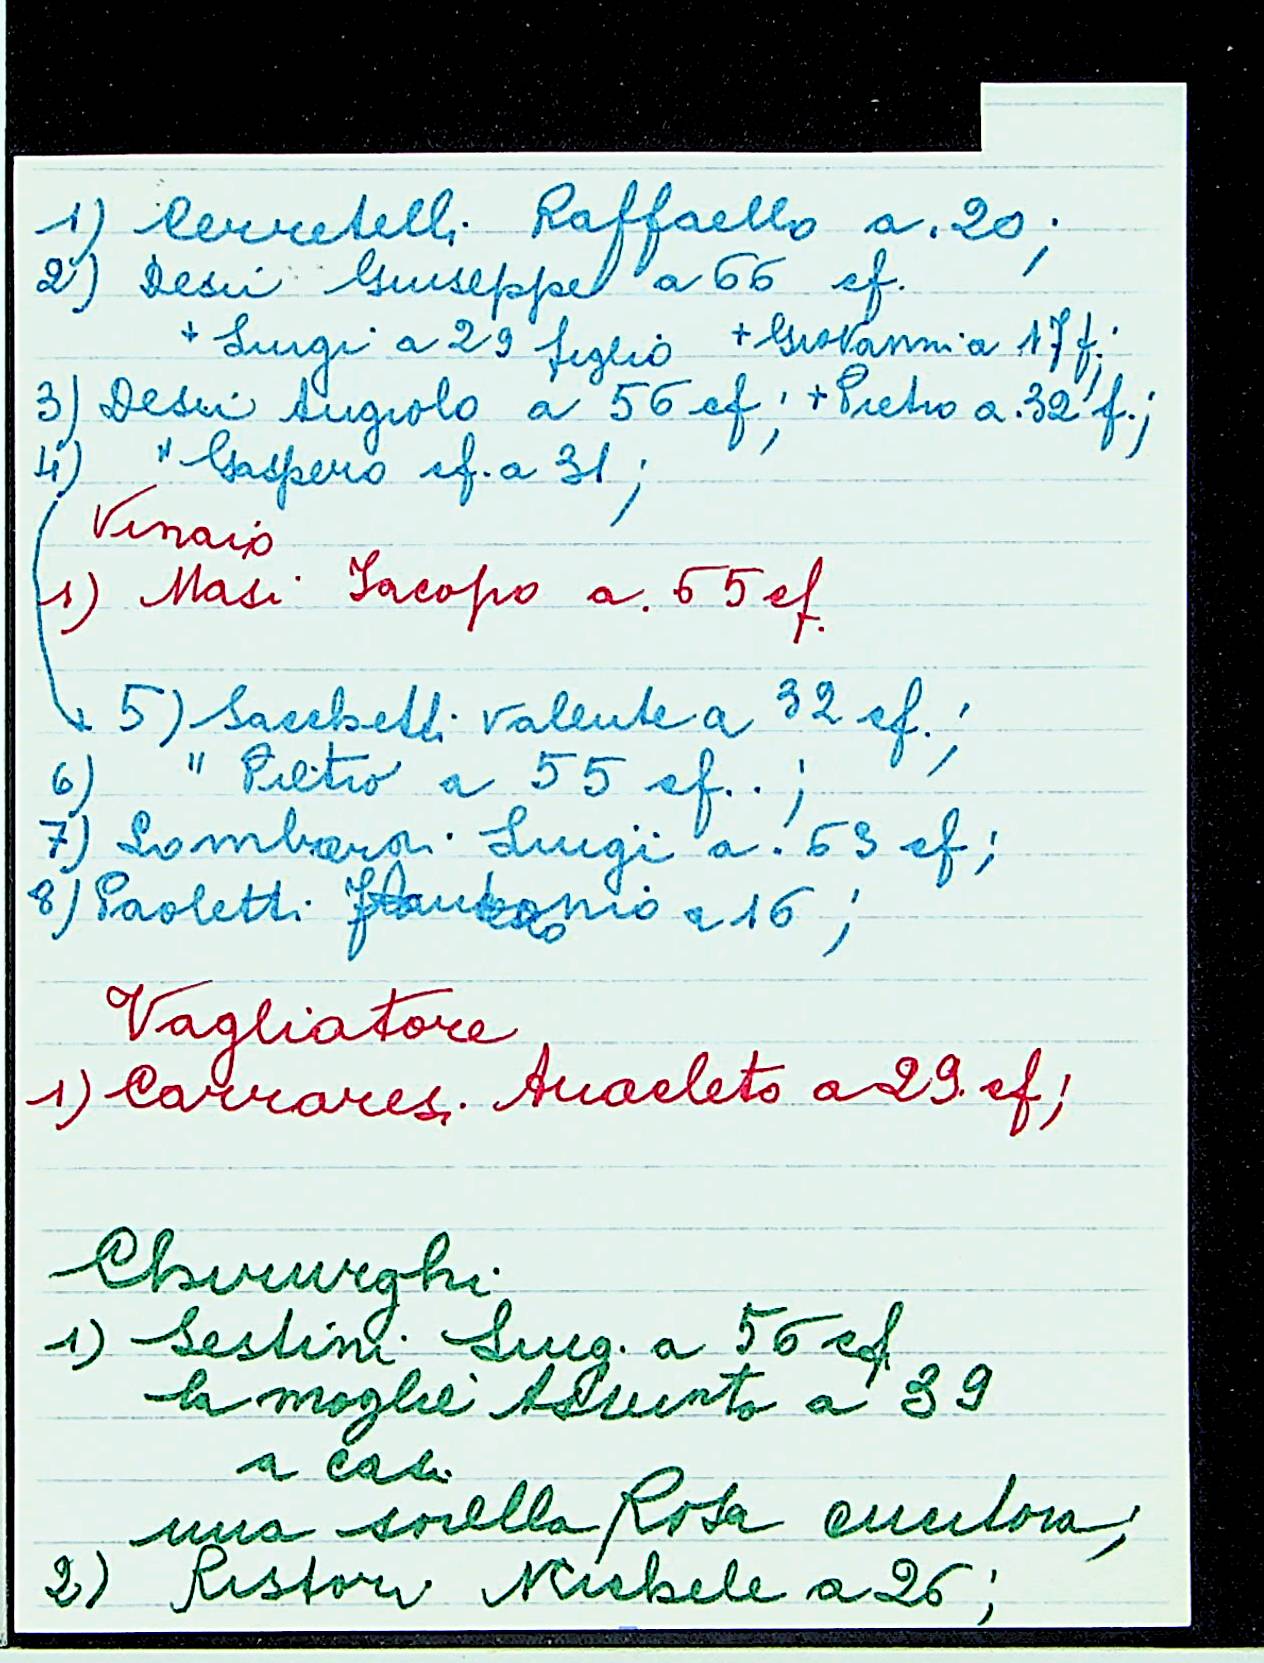 1) Cerretelli Raffaello a. 20;
2) Desii Giuseppe a 66 cf.
+ Luigi a 29 figlio + Giovanni a 17 f.;
3) Desii Angiolo a 56 cf; + Pietro a. 32 f.;
4) " Gaspero cf. a 31;
Vinaio
1) Masi Jacopo a. 65 cf.
5) Sacchetti Valente a 32 cf.;
6) " Pietro a 55 cf..;
7) Lombardi Luigi a. 63 cf;
8) Paoletti a 16;
Vagliatore
1) Carraresi Anacleto a 29. cf;
Chirurghi
1) Sestini Luig. a 56 cf
la moglie Assunta a 39
a casa
una sorella Rosa cucitora;
2) Ristori Michele a 26;